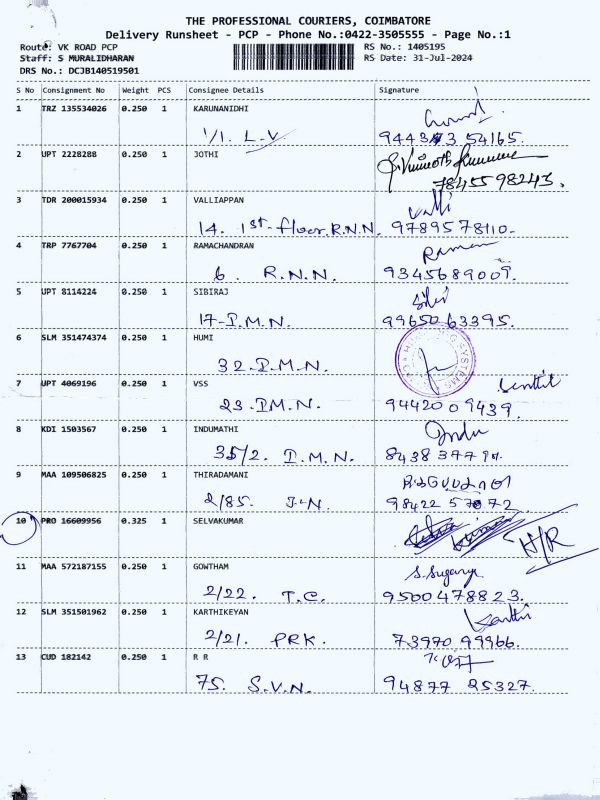 THE PROFESSIONAL COURIERS, COIMBATORE
Delivery Runsheet - PCP - Phone No.:0422-3505555 - Page No.:1
Route: VK ROAD PCP RS No.: 1405195
Staff: S MURALIDHARAN RS Date: 31-Jul-2024
DRS No.: DCJB140519501
S No Consignment No Weight PCS Consignee Details Signature
1 TRZ 135534026 0.250 1 KARUNANIDHI
1/1. L.V. 54165.
2 UPT 2228288 0.250 1 JOTHI
78455 98243.
3 TDR 200015934 0.250 1 VALLIAPPAN Valli
14. 1st floor R.N.N. 97895 78110.
4 TRP 7767704 0.250 1 RAMACHANDRAN Raman
6. R.N.N. 9345689009.
5 UPT 8114224 0.250 1 SIBIRAJ Sibi
17-D.M.N. 99650 63395.
6 SLM 351474374 0.250 1 HUMI
32.D.M.N.
7 UPT 4069196 0.250 1 VSS
23.DM.N. 94420 09439.
8 KDI 1503567 0.250 1 INDUMATHI Indu
35/2. D.M.N. 8438 377
9 MAA 109506825 0.250 1 THIRADAMANI
2/85. J.N. 98422
10 PRO 16609956 0.325 1 SELVAKUMAR
11 MAA 572187155 0.250 1 GOWTHAM S. Suganya
2/22. T.C. 9500478823.
12 SLM 351501962 0.250 1 KARTHIKEYAN Karthi
2/21. PRK. 73970 99966.
13 CUD 182142 0.250 1 R R
75. S.V.N. 94877 25327.